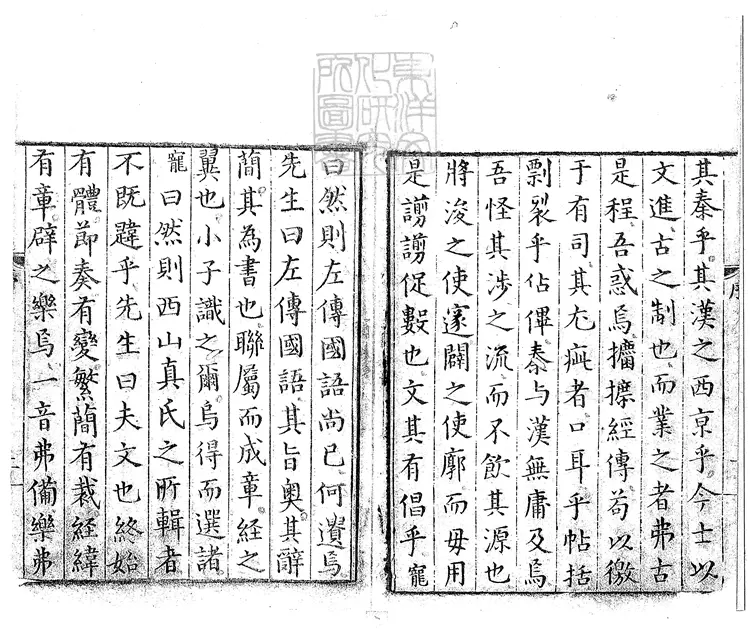 其秦乎其漢之西京乎今士以
文進古之制也而業之者弗古
是程吾惑焉攟摭經傳苟以徼
于有司其尤疵者口耳乎帖括
剽裂乎佔僤秦与漢無庸及焉
吾怪其涉之流而不飲其源也
將浚之使邃闢之使廓而毋用
是謭謭促數也文其有倡乎寵
曰然則左傳國語尚已何遺焉
先生曰左傳國語其旨奧其辭
蕳其為書也聯屬而成章經之
翼也小子識之爾烏得而選諸
寵曰然則西山真氏之所輯者
不既韙乎先生曰夫文也終始
有體節奏有變繁蕳有裁經緯
有章辟之樂焉一音弗備樂弗
序
東洋文化研究所圖書